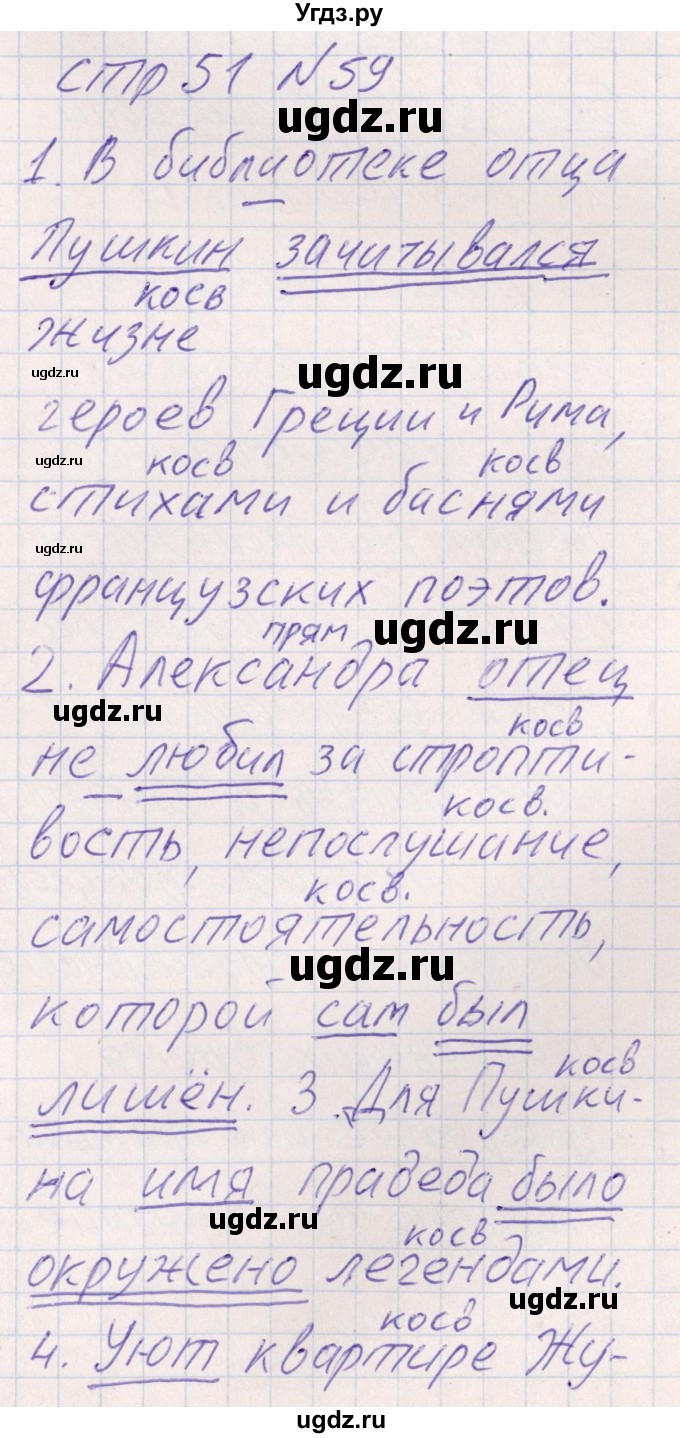 Угдз.ру
стр 51 N 59
ugdz.ru
1. В библиотеке отца
Пушкин зачитывался
косв
жизне
ugdz.ru
ugdz.ru
героев Греции и Рима,
ugdz.ru
косв косв
стихами и баснями
ugdz.ru
французских поэтов.
прям
ugdz.ru
2. Александра отец
ugdz.ru
косв
не любил за стропти-
косв.
вость, непослушание,
косв.
самостоятельность,
ugdz.ru
которой сам был
косв
лишён. 3. Для Пушки-
на имя прадеда было
ugdz.ru
косв
окружено легендами.
ugdz.ru
косв
4. Уют квартире Жу-
ugdz.ru